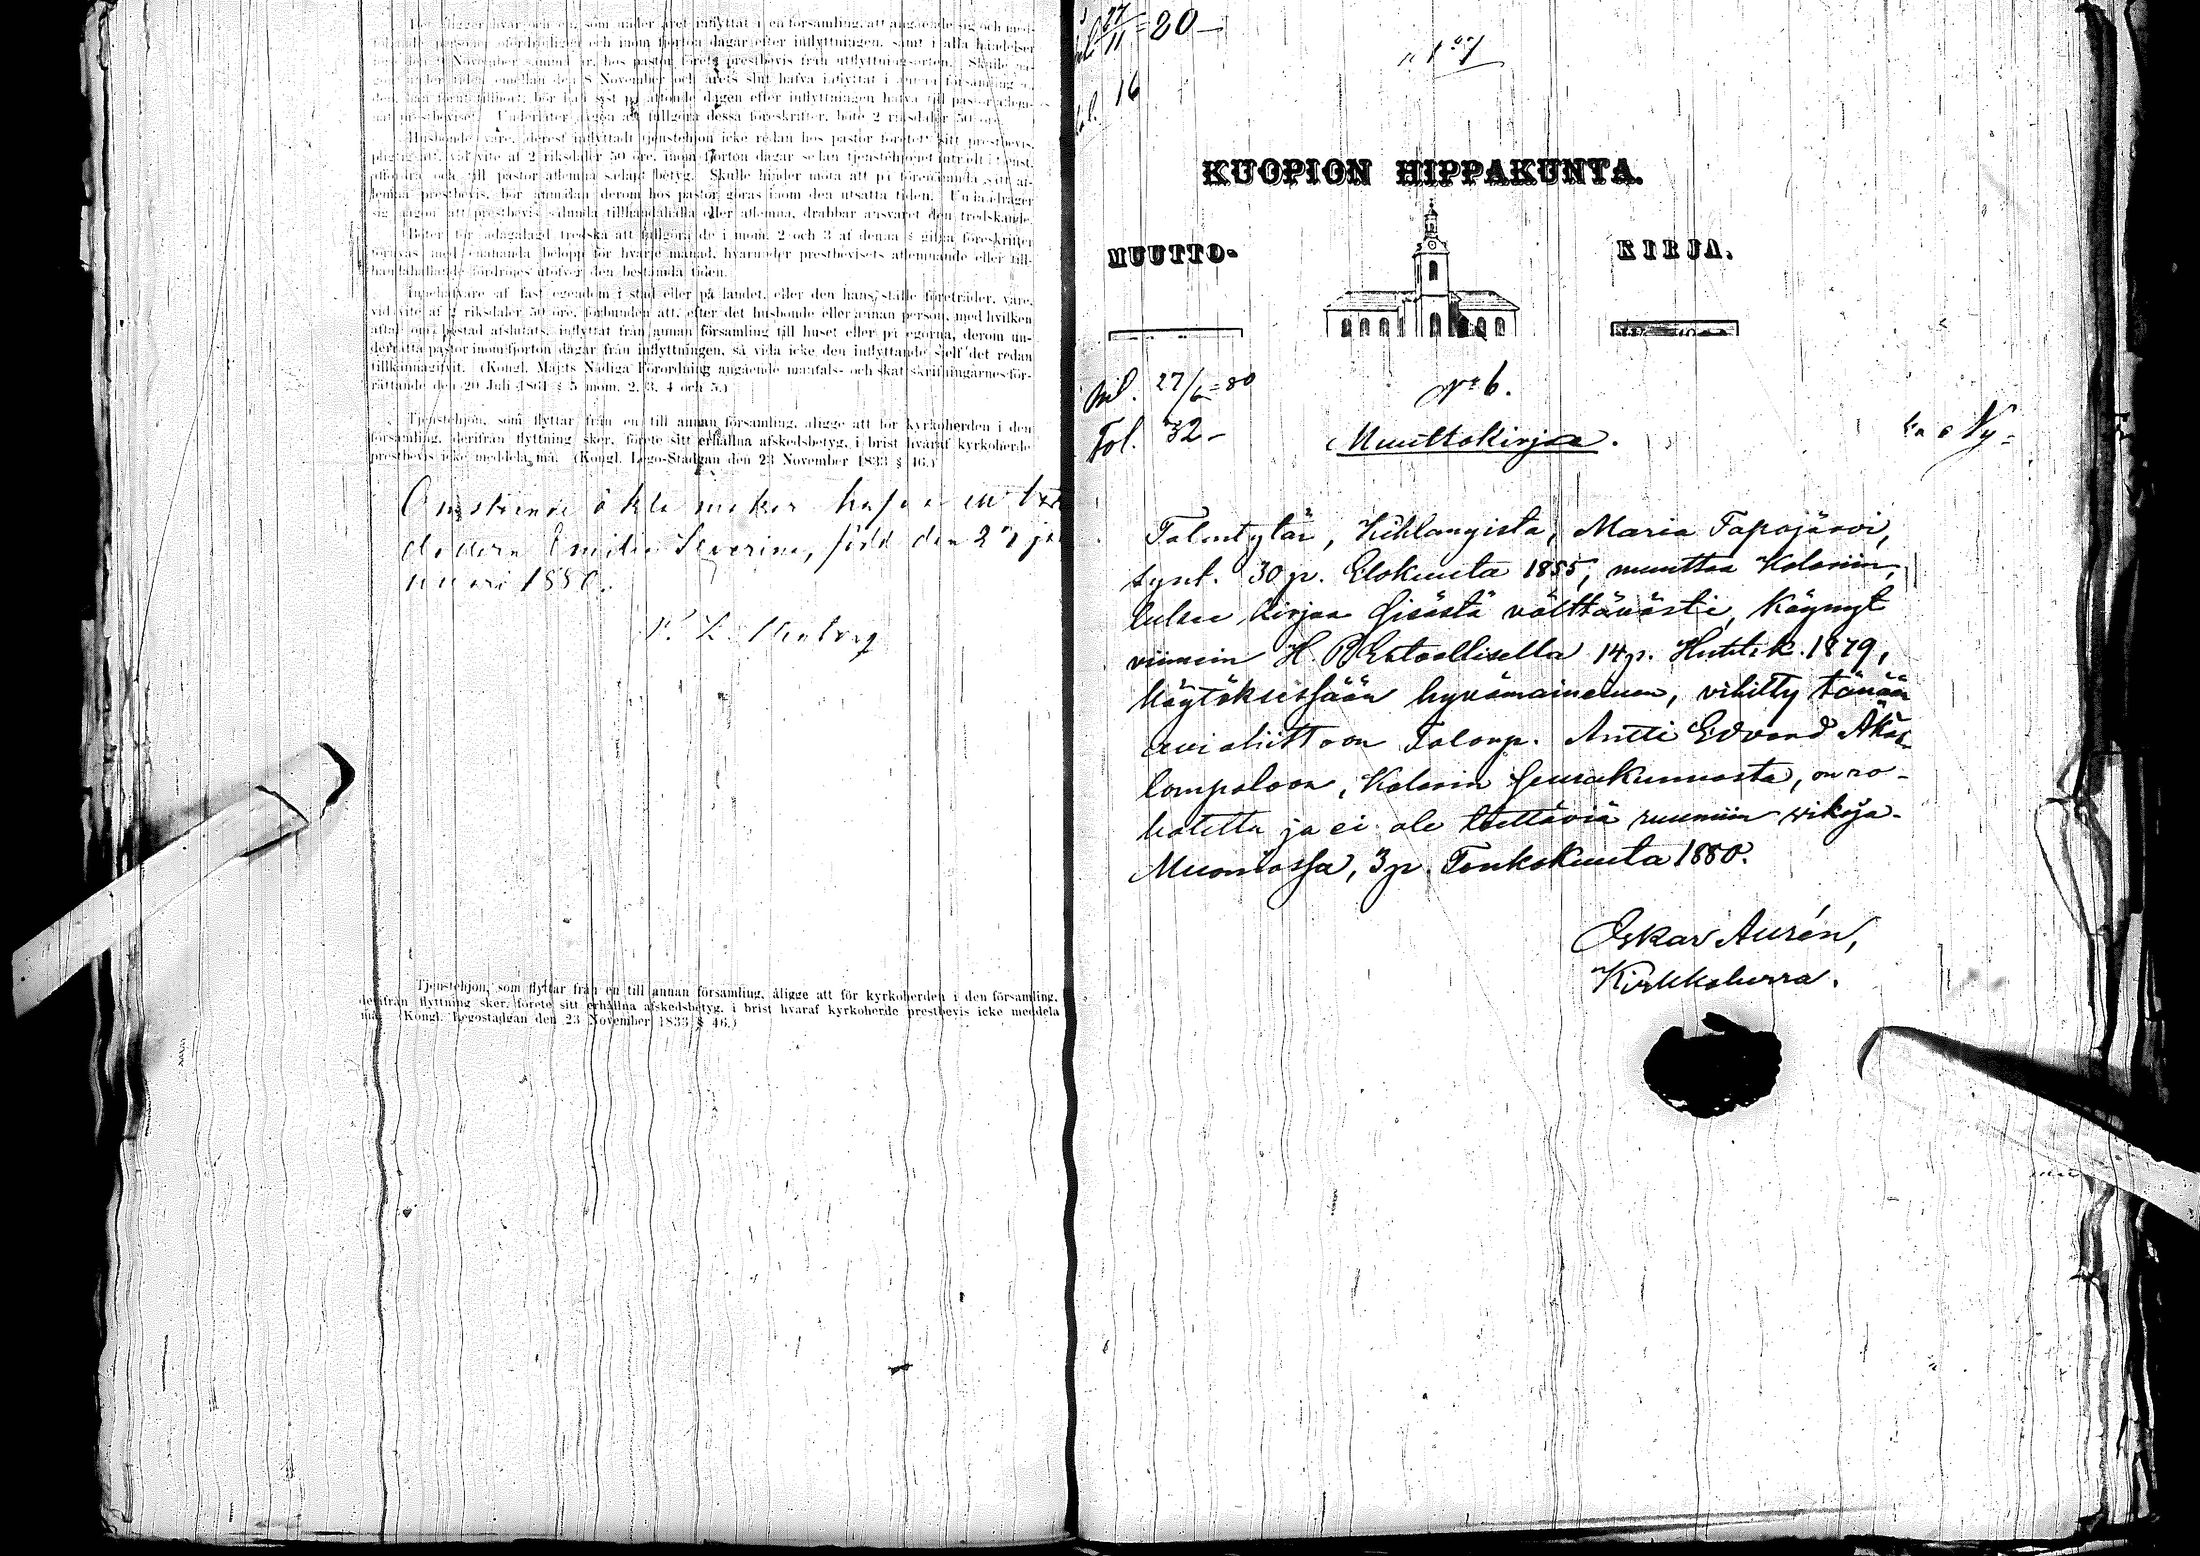 inflyttat i en församling, att angående sig och med-
personer och inom fjorton dagar efter inflyttningen, samt i alla händelser
November samma år, hos pastor förete prestbevis från utflyttningsorten. Skulle
emellan den 8 November och årets slut hafva inflyttat i annan församling
bör han sist på åttonde dagen efter inflyttningen hafva till pastor
prestbeviset. Underlåter någon att fullgöra dessa föreskrifter, böte 2 riksdaler 50 öre.
Husbonde vare, derest inflyttadt tjenstehjon icke redan hos pastor företett sitt prestbevis,
pligtig att, vid vite af 2 riksdaler 50 öre, inom fjorton dagar sedan tjenstehjonet inträdt i tjenst,
och till pastor aflemna sådant betyg. Skulle hinder möta att på
prestbevis, bör anmälan derom hos pastor göras inom den utsatta tiden. Undandrager
sig någon att prestbevis sålunda tillhandahålla eller aflemna, drabbar ansvaret den tredskande.
Böter för ådagalagd tredska att fullgöra de i mom. 2 och 3 af denna § gifna föreskrifter
med enahanda belopp för hvarje månad, hvarunder prestbevisets aflemnande eller till-
handahållande fördröjes utöfver den bestämda tiden.
Innehafvare af fast egendom i stad eller på landet, eller den hans ställe företräder, vare,
vid vite af 2 riksdaler 50 öre, förbunden att, efter det husbonde eller annan person, med hvilken
aftal om bostad afslutats, inflyttat från annan församling till huset eller på egorna, derom un-
derrätta pastor inom fjorton dagar från inflyttningen, så vida icke den inflyttande sjelf det redan
tillkännagifvit. (Kongl. Maj:ts Nådiga Förordning angående mantals- och skattskrifningarnes för-
rättande den 20 Juli 1861 § 5 mom. 2, 3, 4 och 5.)
Tjenstehjon, som flyttar från en till annan församling, åligge att för kyrkoherden i den
församling, derifrån flyttning sker, förete sitt erhållna afskedsbetyg, i brist hvaraf kyrkoherde
prestbevis icke meddela må. (Kongl. Lego-Stadgan den 23 November 1833 § 46.)
Omstående äkta makar hafva en
dottern Emilia Severina, född den 27 ja
nuari 1880.
Tjenstehjon, som flyttar från en till annan församling, åligge att för kyrkoherden i den församling,
derifrån flyttning sker, förete sitt erhållna afskedsbetyg, i brist hvaraf kyrkoherde prestbevis icke meddela
må. (Kongl. Legostadgan den 23 November 1833 § 46.)
27/11=80
16
KUOPION HIPPAKUNTA.
MUUTTO- KIRJA.
Inl. 27/6=80
Fol. 32-
N:o 6.
Muuttokirja.
Talontytär, Kihlangista, Maria Tapojärvi,
synt. 30 p. Elokuuta 1855, muuttaa Kolariin,
lukee kirjaa sisästä välttävästi, Käynyt
viimein H. P. Ehtoollisella 14 p. Huhtik. 1879,
käytöksessään hyvämaineinen, vihitty tänään
avioliittoon Talonp. Antti Edvard Äkäs-
lompoloon, Kolarin seurakunnasta, on ro-
kotettu ja ei ole tiettäviä ruumiin vikoja.
Muoniossa, 3 p. Toukokuuta 1880.
Oskar Aurén,
Kirkkoherra.